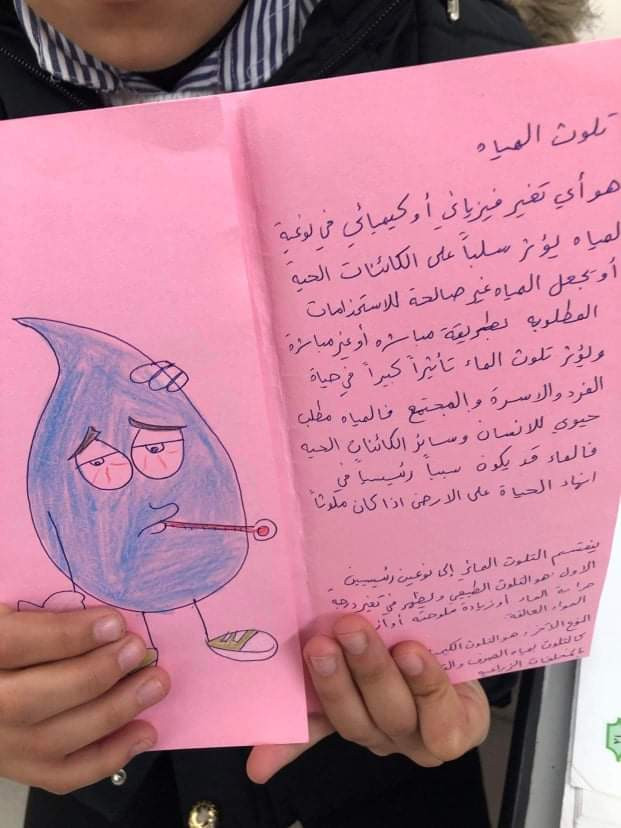 تلوث المياه
هو أي تغير فيزيائي أو كيميائي في نوعية
لمياه يؤثر سلباً على الكائنات الحية
أو تجعل المياه غير صالحة للاستخدامات
المطلوبه بطريقة مباشره أو غير مباشرة
ويؤثر تلوث الماء تأثيراً كبيراً في حياة
الفرد والاسرة والمجتمع فالمياه مطلب
حيوي للانسان وسائر الكائنات الحيه
فالماء قد يكون سبباً رئيسياً في
انهاء الحياة على الارض اذا كان ملوثاً
ينقسم التلوث المائي إلى نوعين رئيسيين
الاول هو التلوث الطبيعي ويظهر في تغير درجة
حرارة الماء أو زيادة ملوحته أو
المواد العالقة
النوع الآخر هو التلوث
كالتلوث بمياه الصرف